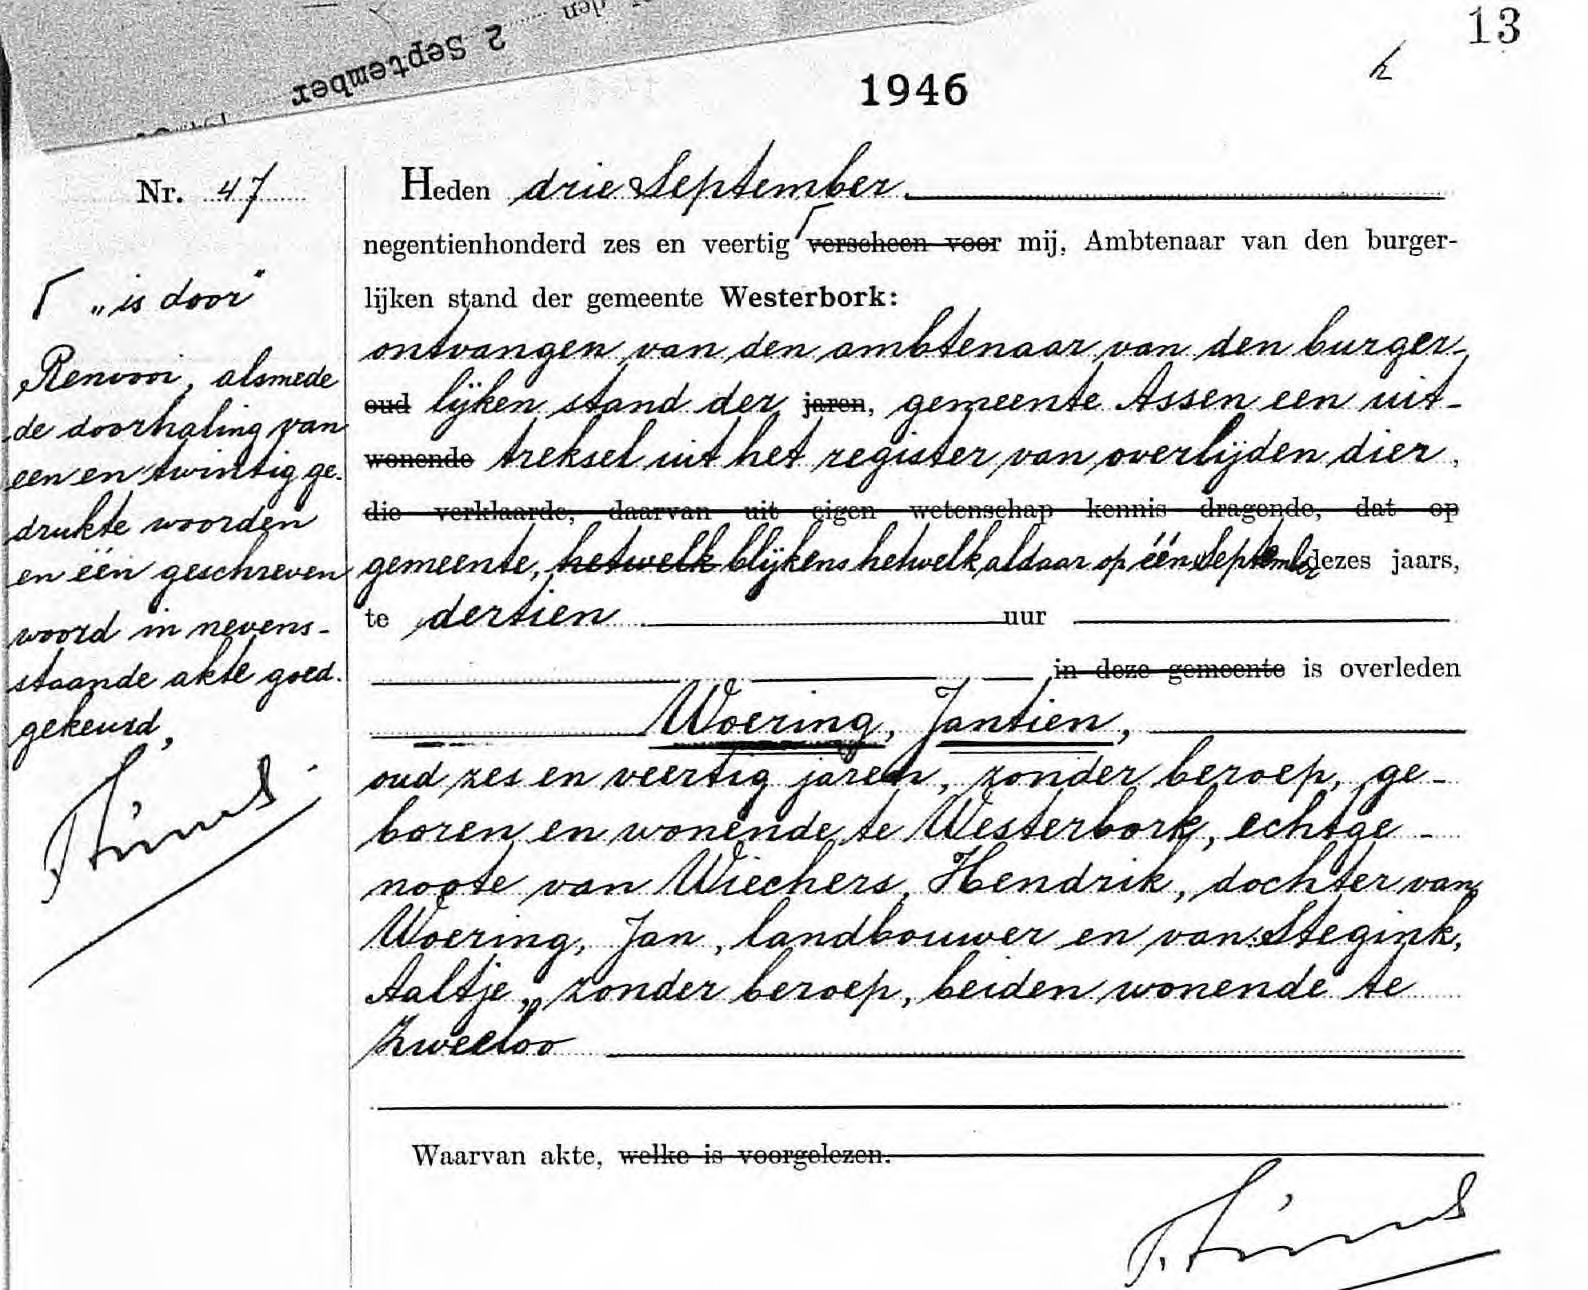 2 September
den
13
1946
Nr. 47
Heden drie September.
negentienhonderd zes en veertig ┌ verscheen voor mij, Ambtenaar van den burger-
lijken stand der gemeente Westerbork:
ontvangen van den ambtenaar van den burger-
oud lijken stand der jaren, gemeente Assen een uit-
wonende treksel uit het register van overlijden dier
die verklaarde, daarvan uit eigen wetenschap kennis dragende, dat op
gemeente, hetwelk blijkens hetwelk aldaar op één September dezes jaars,
te dertien uur
in deze gemeente is overleden
Woering, Jantien,
oud zes en veertig jaren, zonder beroep, ge-
boren en wonende te Westerbork, echtge-
noote van Wiechers, Hendrik, dochter van
Woering, Jan, landbouwer en van Stegink,
Aaltje, zonder beroep, beiden wonende te
Zweeloo
Waarvan akte, welke is voorgelezen.
┌ „is door"
Renvooi, alsmede
de doorhaling van
een en twintig ge-
drukte woorden
en één geschreven
woord in nevens-
staande akte goed-
gekeurd,